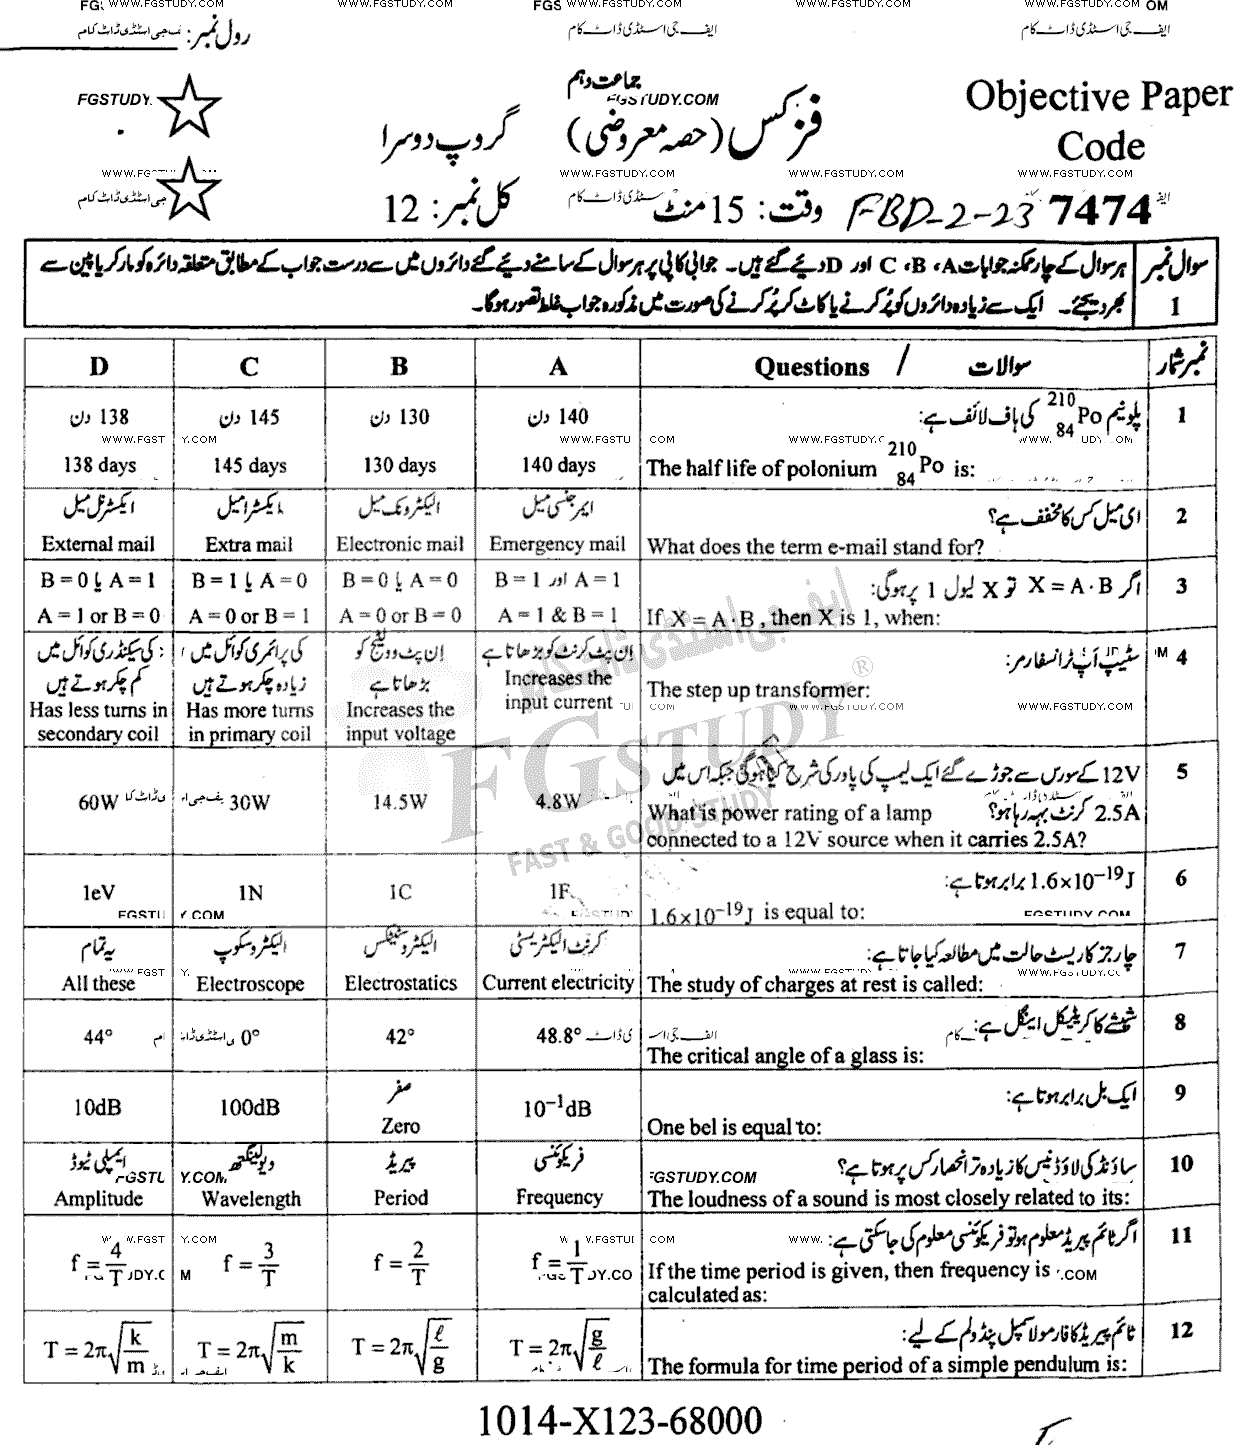 WWW.FGSTUDY.COM FGS WWW.FGSTUDY.COM WWW.FGSTUDY.COM OM
رول نمبر: ایف جی اسٹڈی ڈاٹ کام ایف جی اسٹڈی ڈاٹ کام
جماعت دہم
FGSTUDY. FGSTUDY.COM Objective Paper
فزکس (حصہ معروضی) گروپ دوسرا Code
WWW.FGSTUDY.COM WWW.FGSTUDY.COM
وقت: 15 منٹ کل نمبر: 12 FBD-2-23 7474
سوال نمبر 1
ہر سوال کے چار ممکنہ جوابات A، B، C اور D دیئے گئے ہیں۔ جوابی کاپی پر ہر سوال کے سامنے دیئے گئے دائروں میں سے درست جواب کے مطابق متعلقہ دائرہ کو مارکر یا پین سے
بھر دیجئے۔ ایک سے زیادہ دائروں کو پُر کرنے یا کاٹ کر پُر کرنے کی صورت میں مذکورہ جواب غلط تصور ہوگا۔
D C B A Questions / سوالات نمبر شمار
1 پلونیم 210 84 Po کی ہاف لائف ہے:
140 دن 130 دن 145 دن 138 دن
The half life of polonium 210 84 Po is:
138 days 145 days 130 days 140 days
2 ای میل کس کا مخفف ہے؟
ایمرجنسی میل الیکٹرونک میل ایکسٹرا میل ایکسٹرنل میل
What does the term e-mail stand for?
External mail Extra mail Electronic mail Emergency mail
3 اگر X = A · B تو X لیول 1 پر ہوگی:
A = 1 اور B = 1 A = 0 یا B = 0 A = 0 یا B = 1 A = 1 یا B = 0
If X = A · B, then X is 1, when:
A = 1 or B = 0 A = 0 or B = 1 A = 0 or B = 0 A = 1 & B = 1
4 سٹیپ اَپ ٹرانسفارمر:
اِن پٹ کرنٹ کو بڑھاتا ہے
اِن پٹ وولٹیج کو بڑھاتا ہے
کی پرائمری کوائل میں زیادہ چکر ہوتے ہیں
کی سیکنڈری کوائل میں کم چکر ہوتے ہیں
The step up transformer:
Increases the input current
Increases the input voltage
Has more turns in primary coil
Has less turns in secondary coil
5 12V کے سورس سے جوڑے گئے ایک لیمپ کی پاور کی شرح کیا ہوگی جبکہ اس میں
2.5A کرنٹ بہہ رہا ہو؟
What is power rating of a lamp
connected to a 12V source when it carries 2.5A?
60W 30W 14.5W 4.8W
6 1.6×10⁻¹⁹J برابر ہوتا ہے:
1.6×10⁻¹⁹J is equal to:
1eV 1N 1C 1F
7 چارجز کا ریسٹ حالت میں مطالعہ کیا جاتا ہے:
کرنٹ الیکٹریسٹی الیکٹروسٹیٹکس الیکٹروسکوپ یہ تمام
The study of charges at rest is called:
All these Electroscope Electrostatics Current electricity
8 شیشے کا کریٹیکل اینگل ہے:
The critical angle of a glass is:
44° 0° 42° 48.8°
9 ایک بل برابر ہوتا ہے:
صفر
One bel is equal to:
10dB 100dB Zero 10⁻¹dB
10 ساؤنڈ کی لاؤڈنیس کا زیادہ تر انحصار کس پر ہوتا ہے؟
فریکوئنسی پیریڈ ویولینگتھ ایمپلی ٹیوڈ
The loudness of a sound is most closely related to its:
Amplitude Wavelength Period Frequency
11 اگر ٹائم پیریڈ معلوم ہو تو فریکوئنسی معلوم کی جاسکتی ہے:
If the time period is given, then frequency is
calculated as:
f = 4/T f = 3/T f = 2/T f = 1/T
12 ٹائم پیریڈ کا فارمولا سمپل پنڈولم کے لیے:
The formula for time period of a simple pendulum is:
T = 2π√(k/m) T = 2π√(m/k) T = 2π√(ℓ/g) T = 2π√(g/ℓ)
ایف جی اسٹڈی ڈاٹ کام
FGSTUDY ®
FAST & GOOD STUDY
1014-X123-68000